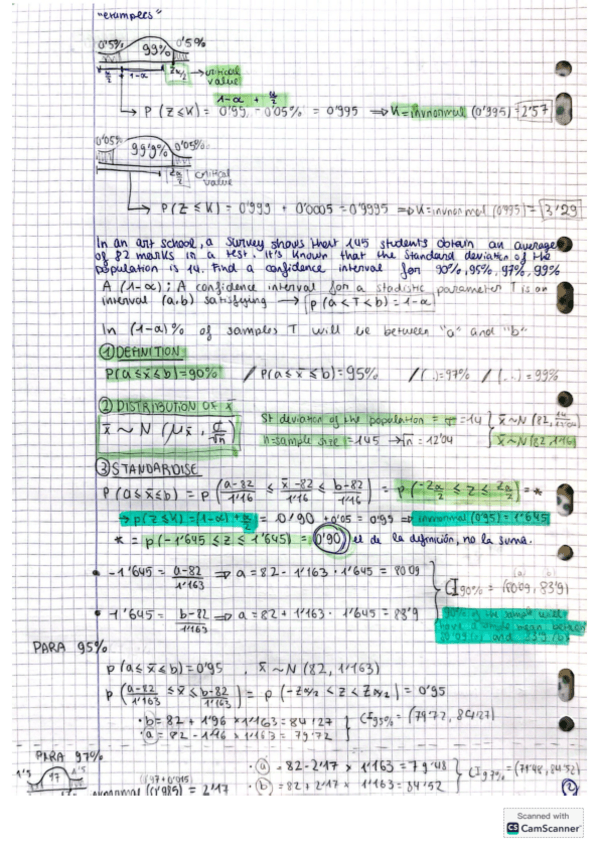 "examples"
0'5% 99% 0'5%
α/2 1-α Zα/2 → critical value
1-α + α/2
→ P(Z≤K) = 0'99 - 0'05% = 0'995 ⇒ K = invnormal (0'995) = 2'57
0'05% 99'9% 0'05%
Zα/2 critical value
→ P(Z≤K) = 0'999 + 0'0005 = 0'9995 ⇒ K = invnormal (0'995) = 3'29
In an art school, a survey shows that 145 students obtain an average
of 82 marks in a test. It's known that the standard deviation of the
population is 14. Find a confidence interval for 90%, 95%, 97%, 99%
A (1-α): A confidence interval for a stadistic parameter T is an
interval (a,b) satisfying → p(a<T<b) = 1-α
In (1-α)% of samples T will be between "a" and "b"
① DEFINITION
P(a≤x̄≤b) = 90% / P(a≤x̄≤b) = 95% / (..) = 97% / (...) = 99%
② DISTRIBUTION OF x̄
x̄ ~ N (μx̄, σ/√n)
St deviation of the population = σ = 14
n = sample size = 145 → √n = 12'04
x̄ ~ N (82, 14/12'04)
x̄ ~ N (82, 1'16)
③ STANDARDISE
P(a≤x̄≤b) = P(a-82/1'16 ≤ x̄-82/1'16 ≤ b-82/1'16) = P(-Zα/2 ≤ Z ≤ Zα/2) = *
→ p(Z≤K) = (1-α) + α/2 = 0'90 + 0'05 = 0'95 ⇒ invnormal (0'95) = 1'645
* = p(-1'645 ≤ Z ≤ 1'645) = 0'90 el de la definición, no la suma.
• -1'645 = a-82/1'163 ⇒ a = 82 - 1'163 · 1'645 = 80'09
• 1'645 = b-82/1'163 ⇒ a = 82 + 1'163 · 1'645 = 83'9
(a) (b)
CI 90% = (80'09, 83'9)
90% of the sample will
have a sample mean between
80'09 (a) and 83'9 (b)
PARA 95%
p(a≤x̄≤b) = 0'95 . x̄ ~ N (82, 1'163)
p(a-82/1'163 ≤ x̄ ≤ b-82/1'163) = p(-Zα/2 < Z < Zα/2) = 0'95
· b = 82 + 1'96 × 1'163 = 84'27
· a = 82 - 1'96 × 1'163 = 79'72
CI 95% = (79'72, 84'27)
PARA 97%
1'5 97 1'5
(0'97+0'015)
invnormal (0'985) = 2'17
· a = 82 - 2'17 × 1'163 = 79'48
· b = 82 + 2'17 × 1'163 = 84'52
CI 97% = (79'48, 84'52)
(2)
Scanned with
CS CamScanner